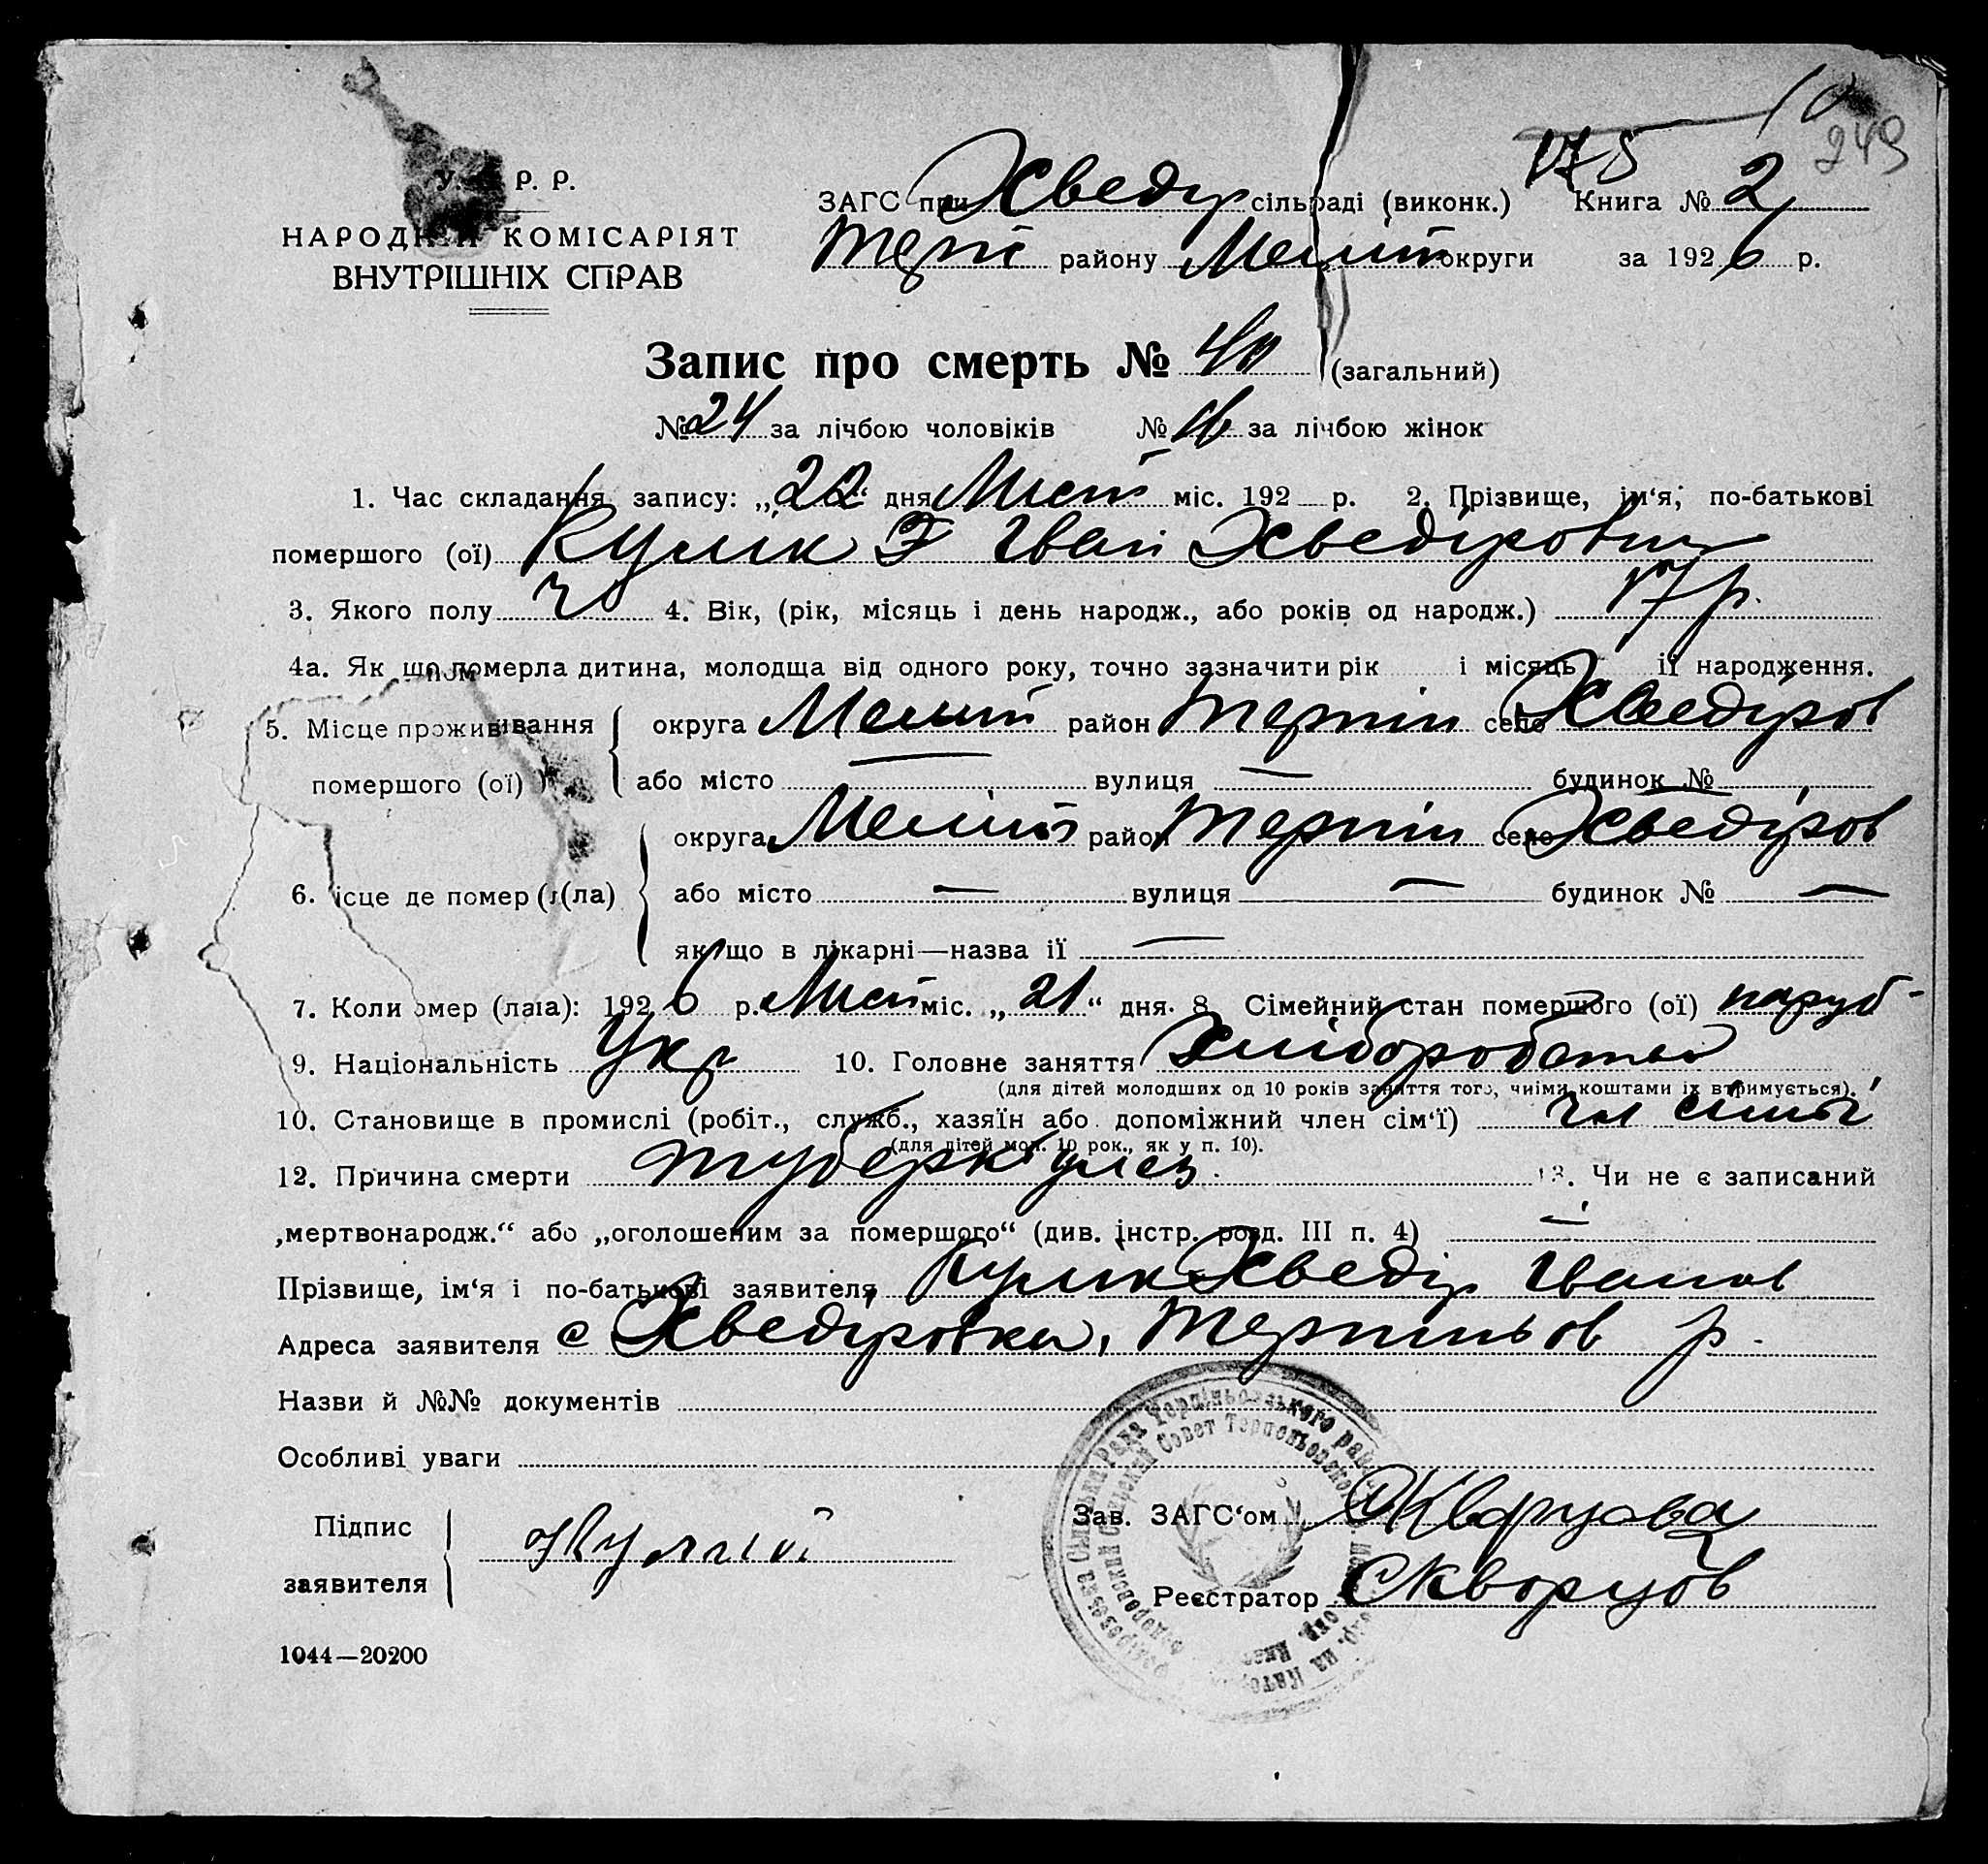 10
175
249
У. Р. Р.
НАРОДНИЙ КОМІСАРІЯТ
ВНУТРІШНІХ СПРАВ
ЗАГС при Хведір сільраді (виконк.) Книга № 2
Терп району Меліт округи за 1926 р.
Запис про смерть № 40 (загальний)
№ 24 за лічбою чоловіків № 16 за лічбою жінок
1. Час складання запису: „22“ дня Лист міс. 192 р. 2. Прізвище, ім‘я, по-батькові
помершого (ої) Кулік Іван Хведірович
3. Якого полу ч 4. Вік, (рік, місяць і день народж., або років од народж.) 17 р.
4а. Як що померла дитина, молодща від одного року, точно зазначити рік і місяць її народження.
5. Місце проживання округа Меліт район Терпін село Хведіров
помершого (ої) або місто — вулиця — будинок № —
округа Меліт район Терпін село Хведіров
6. ісце де помер (ла) або місто — вулиця — будинок № —
якщо в лікарні—назва ії —
7. Коли омер (ла): 1926 р. Лист міс. „21“ дня. 8. Сімейний стан помершого (ої) паруб-
9. Національність Укр 10. Головне заняття Хліборобство
(для дітей молодших од 10 років заняття того, чиїми коштами їх втримується).
10. Становище в промислі (робіт., служб., хазяїн або допоміжний член сім‘ї) чл сімьї
(для дітей мол. 10 рок., як у п. 10).
12. Причина смерти туберкульз. 13. Чи не є записаний
„мертвонародж.“ або „оголошеним за помершого“ (див. інстр. розд. III п. 4) —
Прізвище, ім‘я і по-батькові заявителя Кулік Хведір Іванов
Адреса заявителя с Хведіровка, Терпіньов р.
Назви й №№ документів
Особливі уваги
Підпис
заявителя Кулик
Зав. ЗАГС‘ом Скворцова
Реєстратор Скворцов
1044—20200
Сільська Рада Терпіньовського рай
Совет Терпеньевского